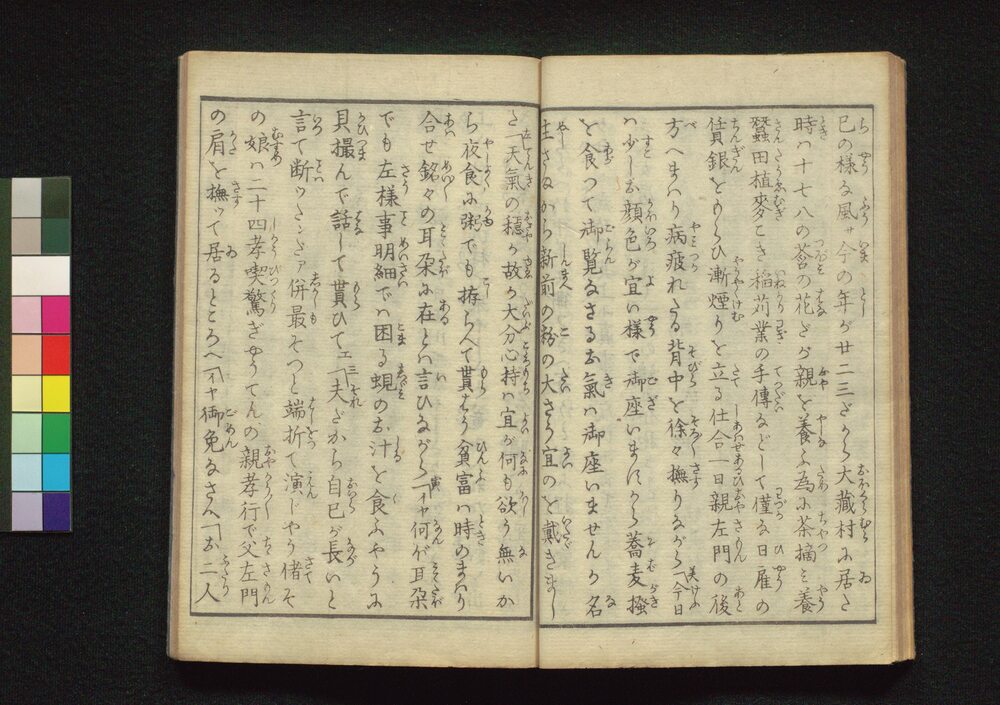 巳の様な風ヶ今の年が廿二三だから大藏村に居た
時ハ十七八の莟の花だが親を養ふ為に茶摘ミ養
蠶田植麥こき稲苅業の手傳などして僅な日雇の
賃銀をもらひ漸煙りを立る仕合一日親左門の後
方へまハり病疲れたる背中を徐々撫りながら「今日
ハ少しお顔色が宜い様で御座いますから蕎麦掻
を食つて御覧なさるお氣ハ御座いませんか名
主さまから新前の粉の大さう宜のを戴きまし
た「天氣の穏か故か大分心持ハ宜が何も欲う無いか
ら夜食に粥でも拵らへて貰はう貧富ハ時のまハり
合せ銘々の耳朶に在とハ言ひながら「イヤ何が耳朶
でも左様事明細でハ困る蜆のお汁を食ふやうに
貝撮んで話して貰ひてエ「夫だから自己が長いと
言て断ッたゝァ併最そつと端折て演しやう偖そ
の娘ハ二十四孝喫驚ぎやうてんの親孝行で父左門
の肩を撫ッて居るところへ「イヤ御免なさへ「お二人